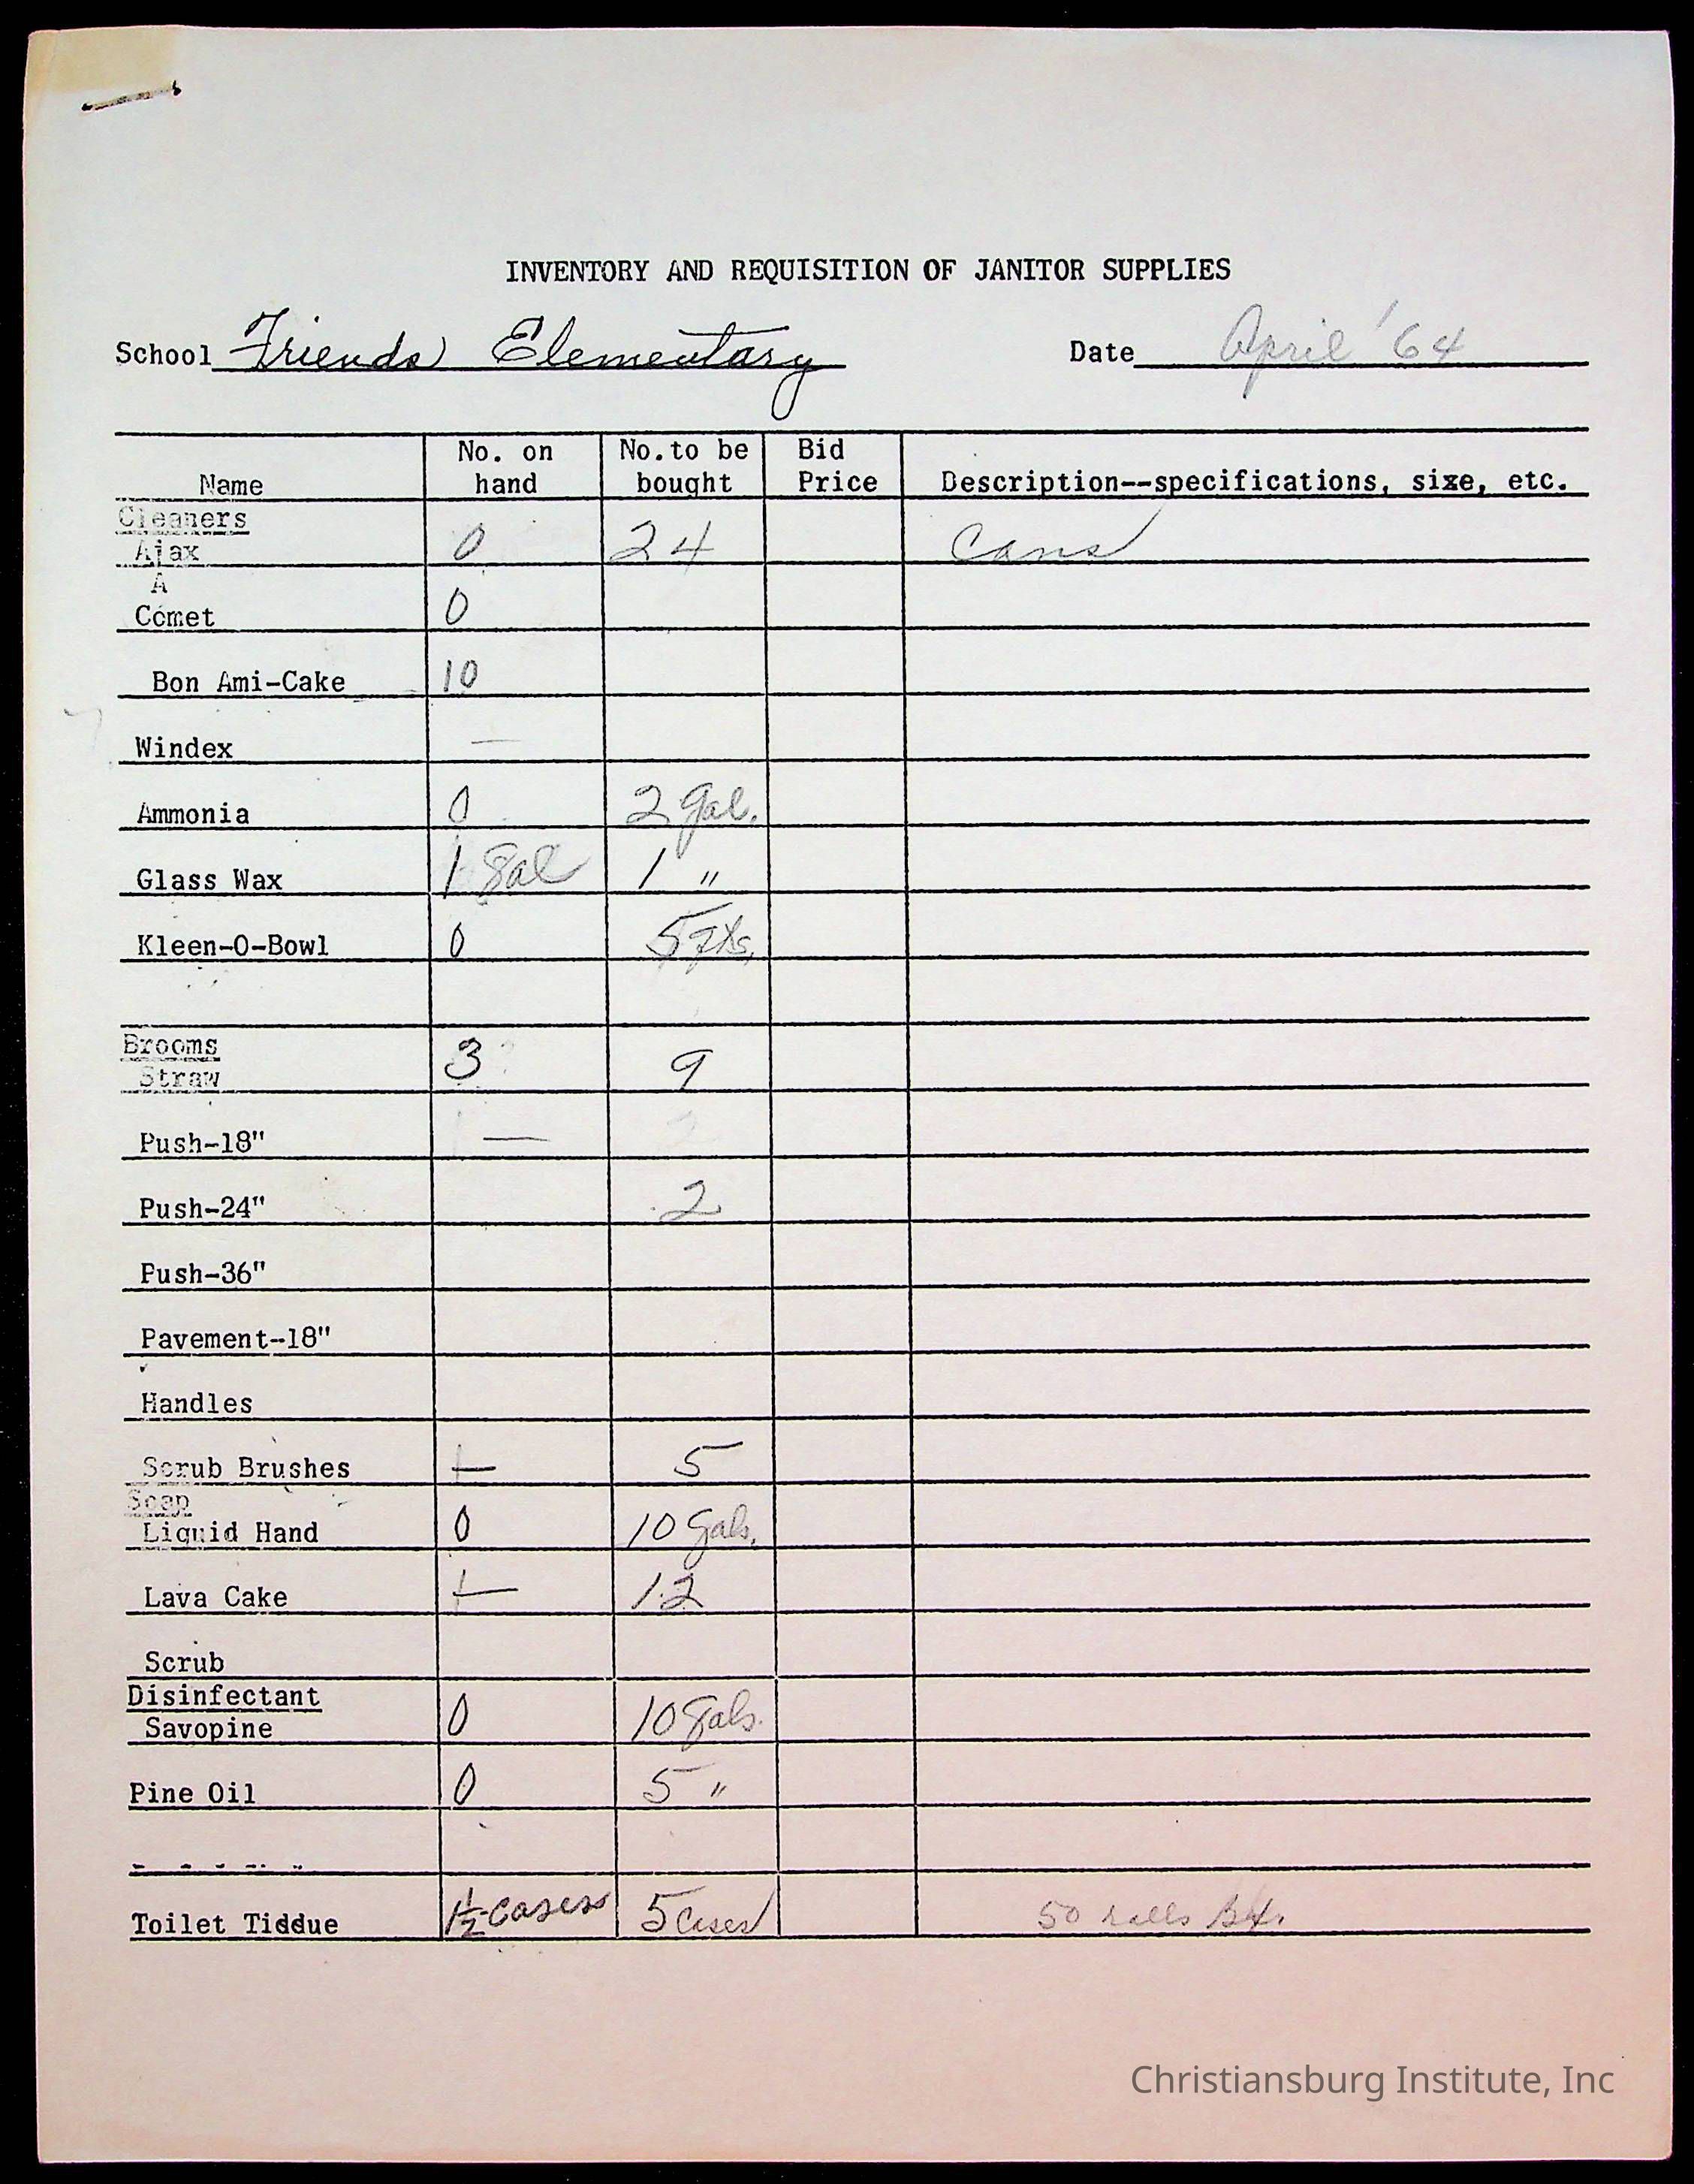 INVENTORY AND REQUISITION OF JANITOR SUPPLIES
School Friends Elementary Date April '64
Name No. on hand No. to be bought Bid Price Description--specifications, sixe, etc.
Cleaners
Ajax 0 24 Cans
A
Comet 0
Bon Ami-Cake 10
Windex —
Ammonia 0 2 gal.
Glass Wax 1 gal 1 "
Kleen-O-Bowl 0 5 qts.
Brooms
Straw 3 9
Push-18" —
Push-24" 2
Push-36"
Pavement-18"
Handles
Scrub Brushes — 5
Soap
Liquid Hand 0 10 Gals.
Lava Cake — 12
Scrub
Disinfectant
Savopine 0 10 gals.
Pine Oil 0 5 "
Toilet Tiddue 1½ cases 5 cases 50 rolls
Christiansburg Institute, Inc